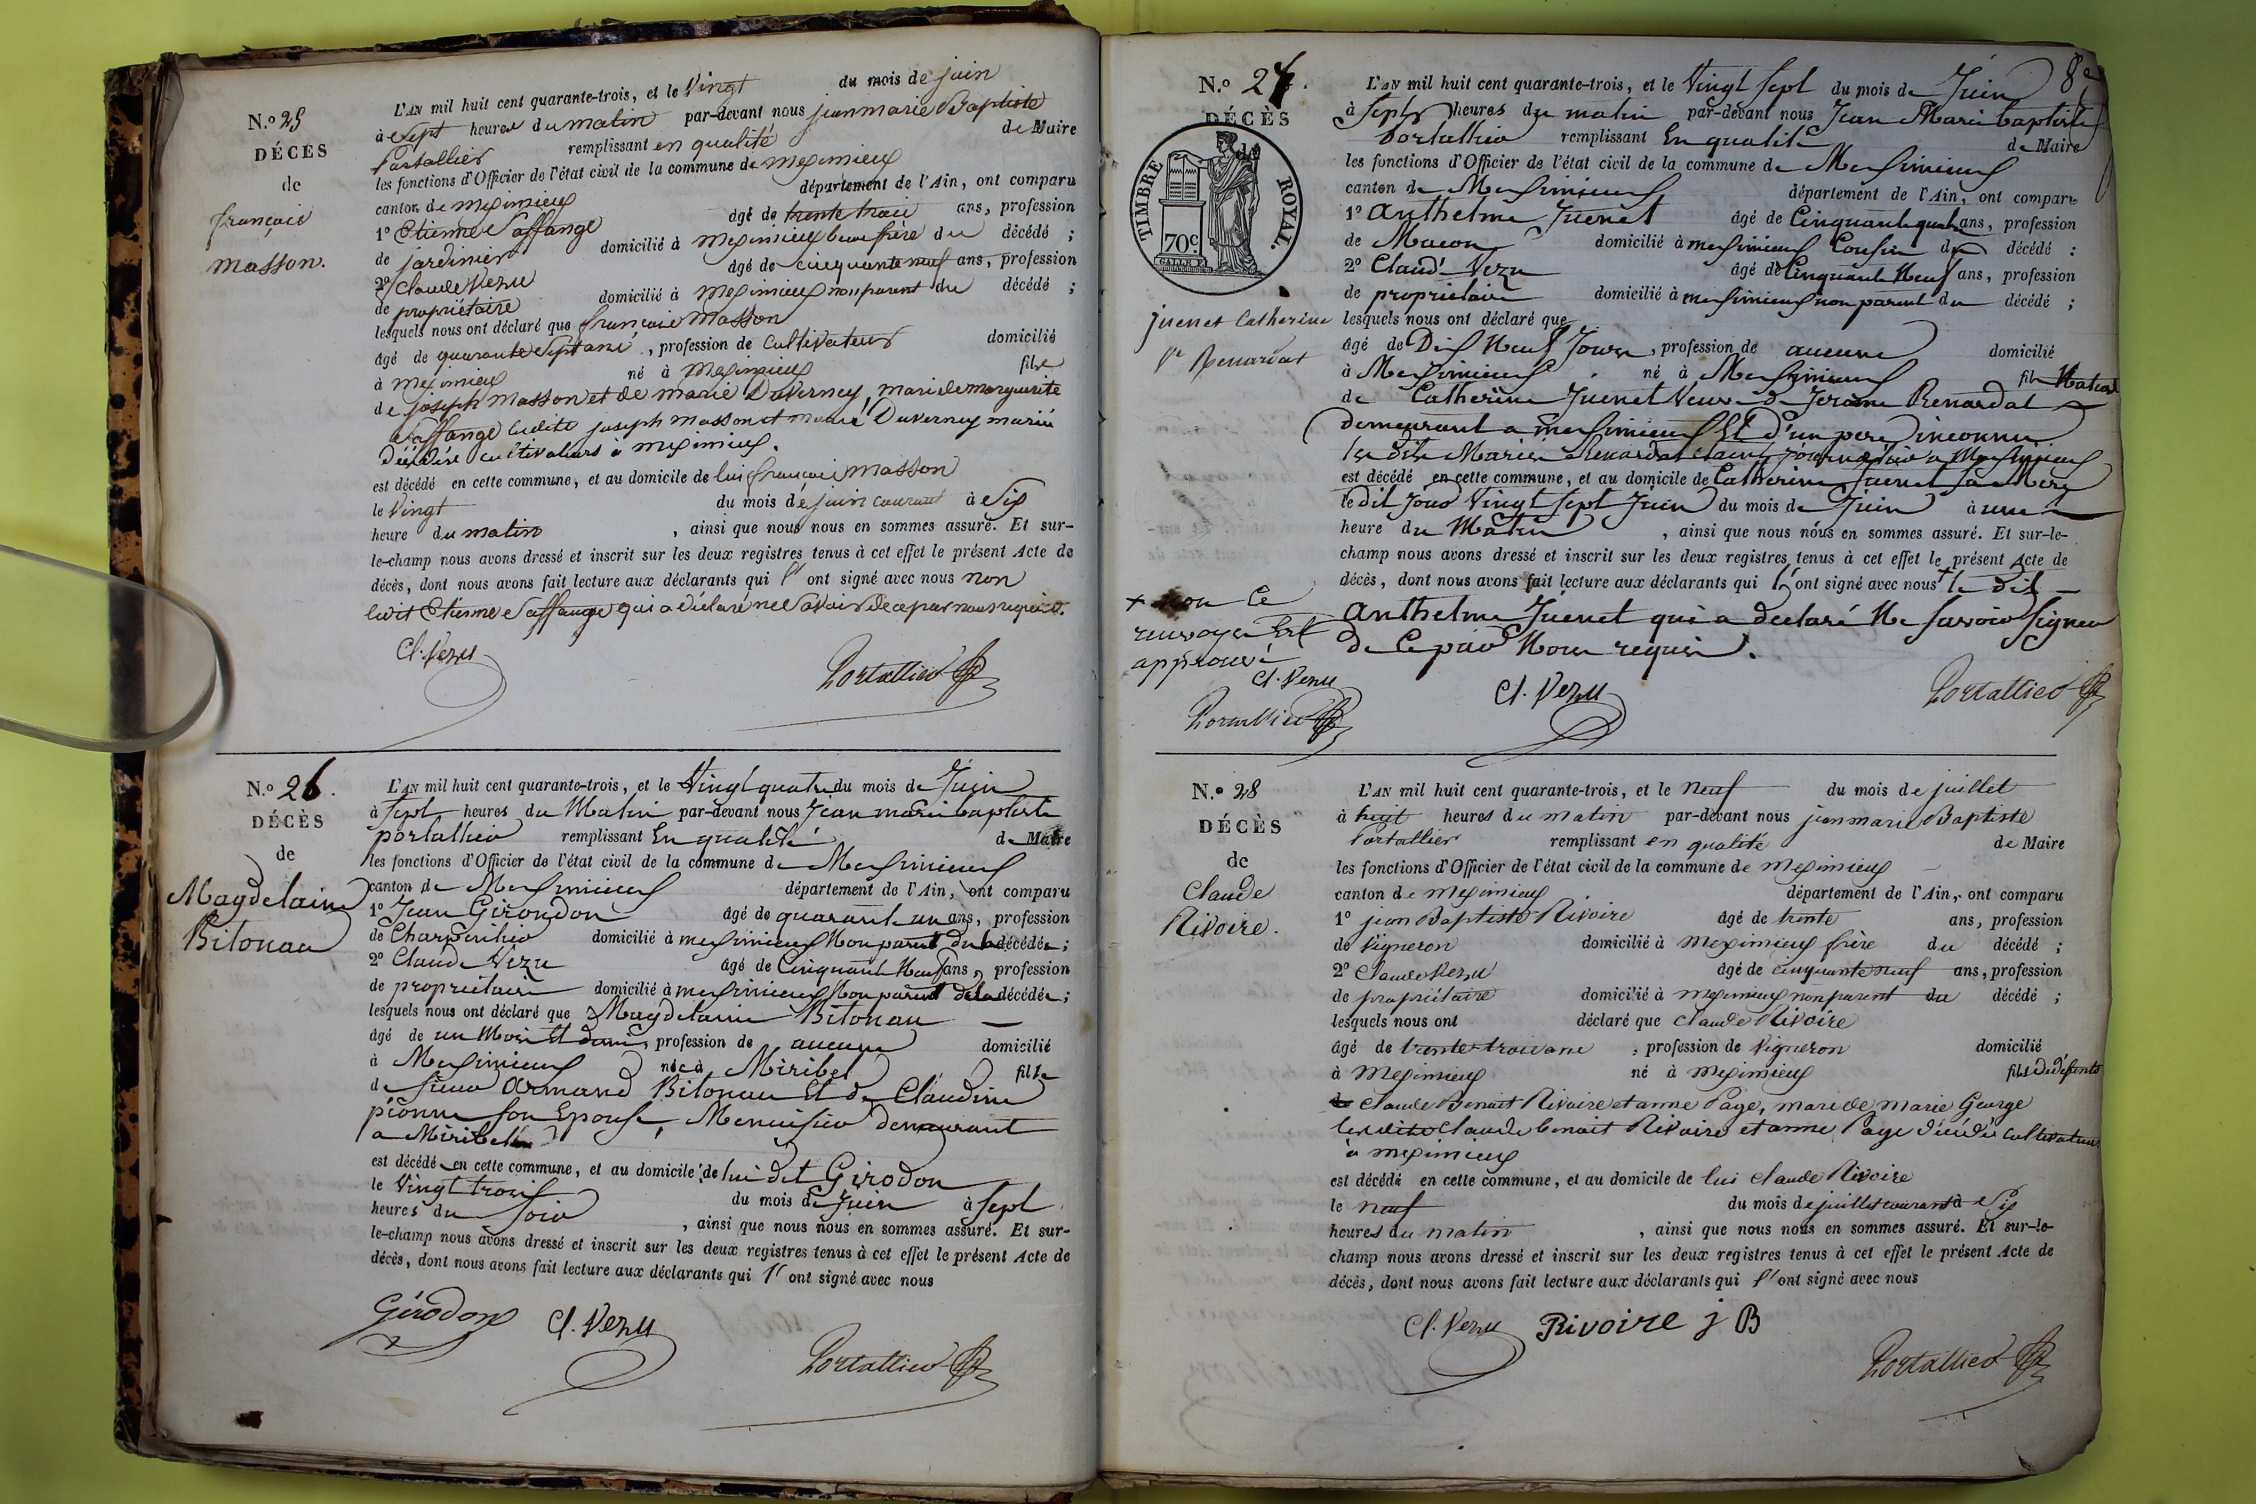 N.o 25
DÉCÈS
de
françois
Masson.
L'AN mil huit cent quarante-trois, et le Vingt du mois de juin
à Sept heures du matin par-devant nous jean marie Baptiste
Portallier remplissant en qualité de Maire
les fonctions d'Officier de l'état civil de la commune de meximieux
canton de meximieux département de l'Ain, ont comparu
1° Etienne Saffange âgé de trente trois ans, profession
de jardinier domicilié à meximieux beau frère du décédé ;
2° Claude Vezu âgé de cinquante neuf ans, profession
de propriétaire domicilié à meximieux non parent du décédé ;
lesquels nous ont déclaré que françois Masson
âgé de quarante Sept ans, profession de Cultivateur domicilié
à meximieux né à meximieux fils
de joseph Masson et de marie Duverney, mari de marguerite
Saffange lesdits joseph masson et marie Duverney mariés
décédés cultivateurs à meximieux.
est décédé en cette commune, et au domicile de lui françois masson
le Vingt du mois de juin courant à Six
heure du matin, ainsi que nous nous en sommes assuré. Et sur-
le-champ nous avons dressé et inscrit sur les deux registres tenus à cet effet le présent Acte de
décès, dont nous avons fait lecture aux déclarants qui l' ont signé avec nous non
ledit Etienne Saffange qui a déclaré ne Savoir de ce par nous requis.
Cl. Vezu
Portallier
N.o 26.
DÉCÈS
de
Magdelaine
Bitonau
L'AN mil huit cent quarante-trois, et le Vingt quatre du mois de Juin
à Sept heures du Matin par-devant nous Jean marie baptiste
portallier remplissant En qualité de Maire
les fonctions d'Officier de l'état civil de la commune de Meximieux
canton de Meximieux département de l'Ain, ont comparu
1° Jean Girondon âgé de quarante un ans, profession
de Charpentier domicilié à meximieux Non parent de la décédée ;
2° Claude Vezu âgé de Cinquante Neuf ans, profession
de propriétaire domicilié à meximieux Non parent de la décédée ;
lesquels nous ont déclaré que Magdelaine Bitonau
âgé de un Mois Et demi, profession de aucune domicilié
à Meximieux née à Miribel fille
de sieur Armand Bitonau Et de Claudine
pionne son Epouse, Menuisier demeurant
a Miribel
est décédé en cette commune, et au domicile de lui dit Girodon
le Vingt trois du mois de Juin à Sept
heures du Soir, ainsi que nous nous en sommes assuré. Et sur-
le-champ nous avons dressé et inscrit sur les deux registres tenus à cet effet le présent Acte de
décès, dont nous avons fait lecture aux déclarants qui l' ont signé avec nous
Girodon
Cl. Vezu
Portallier
8e
N.o 27.
DÉCÈS
TIMBRE ROYAL.
70c
GALLE F.
juenet Catherine
Ve Renardat
L'AN mil huit cent quarante-trois, et le Vingt Sept du mois de Juin
à Sept heures du matin par-devant nous Jean Marie baptiste
portallier remplissant En qualité de Maire
les fonctions d'Officier de l'état civil de la commune de Meximieux
canton de Meximieux département de l'Ain, ont comparu
1° Anthelme Juenet âgé de Cinquante quatre ans, profession
de Macon domicilié à meximieux Cousin du décédé ;
2° Claude Vezu âgé de Cinquante Neuf ans, profession
de propriétaire domicilié à meximieux non parent du décédé ;
lesquels nous ont déclaré que
âgé de Dix Neuf Jours, profession de aucune domicilié
à Meximieux né à Meximieux fils Naturel
de Catherine Juenet Veuve de Jerome Renardat
demeurant a meximieux Et d'un pere inconnu
est décédé en cette commune, et au domicile de Catherine Juenet sa Mere
le dit Jour Vingt Sept Juin du mois de Juin à une
heure du Matin, ainsi que nous nous en sommes assuré. Et sur-le-
champ nous avons dressé et inscrit sur les deux registres tenus à cet effet le présent Acte de
décès, dont nous avons fait lecture aux déclarants qui l' ont signé avec nous + le dit
Anthelme Juenet qui a declaré Ne Savoir Signer
de Ce par Nous requis.
+ non Ce
renvoyer Est
approuvé
Cl. Vezu
Portallier
Cl. Vezu
Portallier
N.o 28
DÉCÈS
de
Claude
Rivoire.
L'AN mil huit cent quarante-trois, et le neuf du mois de juillet
à huit heures du matin par-devant nous jean marie Baptiste
Portallier remplissant en qualité de Maire
les fonctions d'Officier de l'état civil de la commune de meximieux
canton de meximieux département de l'Ain, ont comparu
1° jean Baptiste Rivoire âgé de trente ans, profession
de Vigneron domicilié à meximieux frère du décédé ;
2° Claude Vezu âgé de cinquante neuf ans, profession
de propriétaire domicilié à meximieux non parent du décédé ;
lesquels nous ont déclaré que Claude Rivoire
âgé de trente trois ans, profession de Vigneron domicilié
à Meximieux né à meximieux fils de défunts
Claude Benoit Rivoire et anne Page, mari de Marie George
lesdits Claude benoit Rivoire et anne Page décédés cultivateurs
à meximieux
est décédé en cette commune, et au domicile de lui Claude Rivoire
le neuf du mois de juillet courant à Six
heures du matin, ainsi que nous nous en sommes assuré. Et sur-le-
champ nous avons dressé et inscrit sur les deux registres tenus à cet effet le présent Acte de
décès, dont nous avons fait lecture aux déclarants qui l' ont signé avec nous
Cl. Vezu
Rivoire j B
Portallier